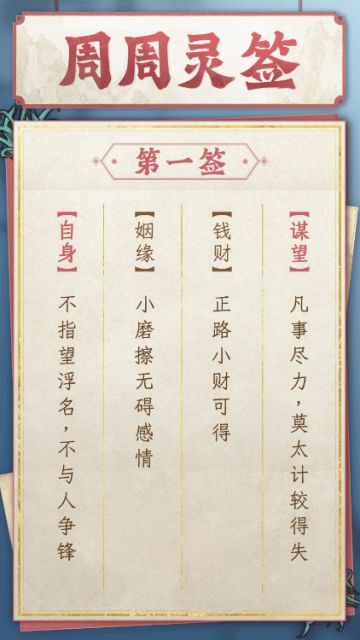 周周灵签
第一签
【谋望】凡事尽力，莫太计较得失
【钱财】正路小财可得
【姻缘】小磨擦无碍感情
【自身】不指望浮名，不与人争锋